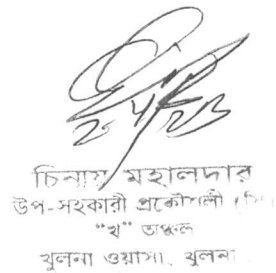 চিনায় মহালদার
উপ-সহকারী প্রকৌশলী
“খ” অঞ্চল
খুলনা ওয়াসা, খুলনা